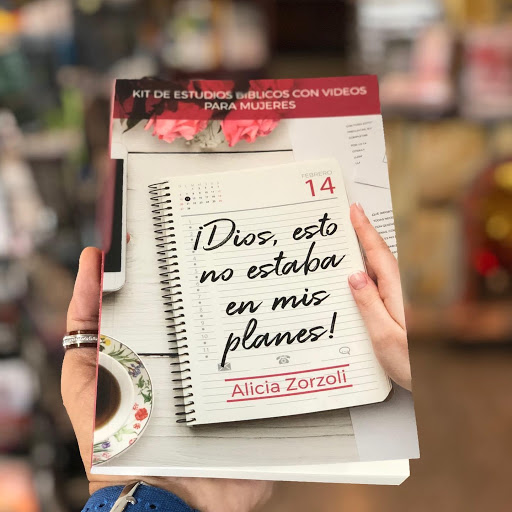 KIT DE ESTUDIOS BÍBLICOS CON VIDEOS
PARA MUJERES
FEBRERO
14
¡Dios, esto
no estaba
en mis
planes!
Alicia Zorzoli